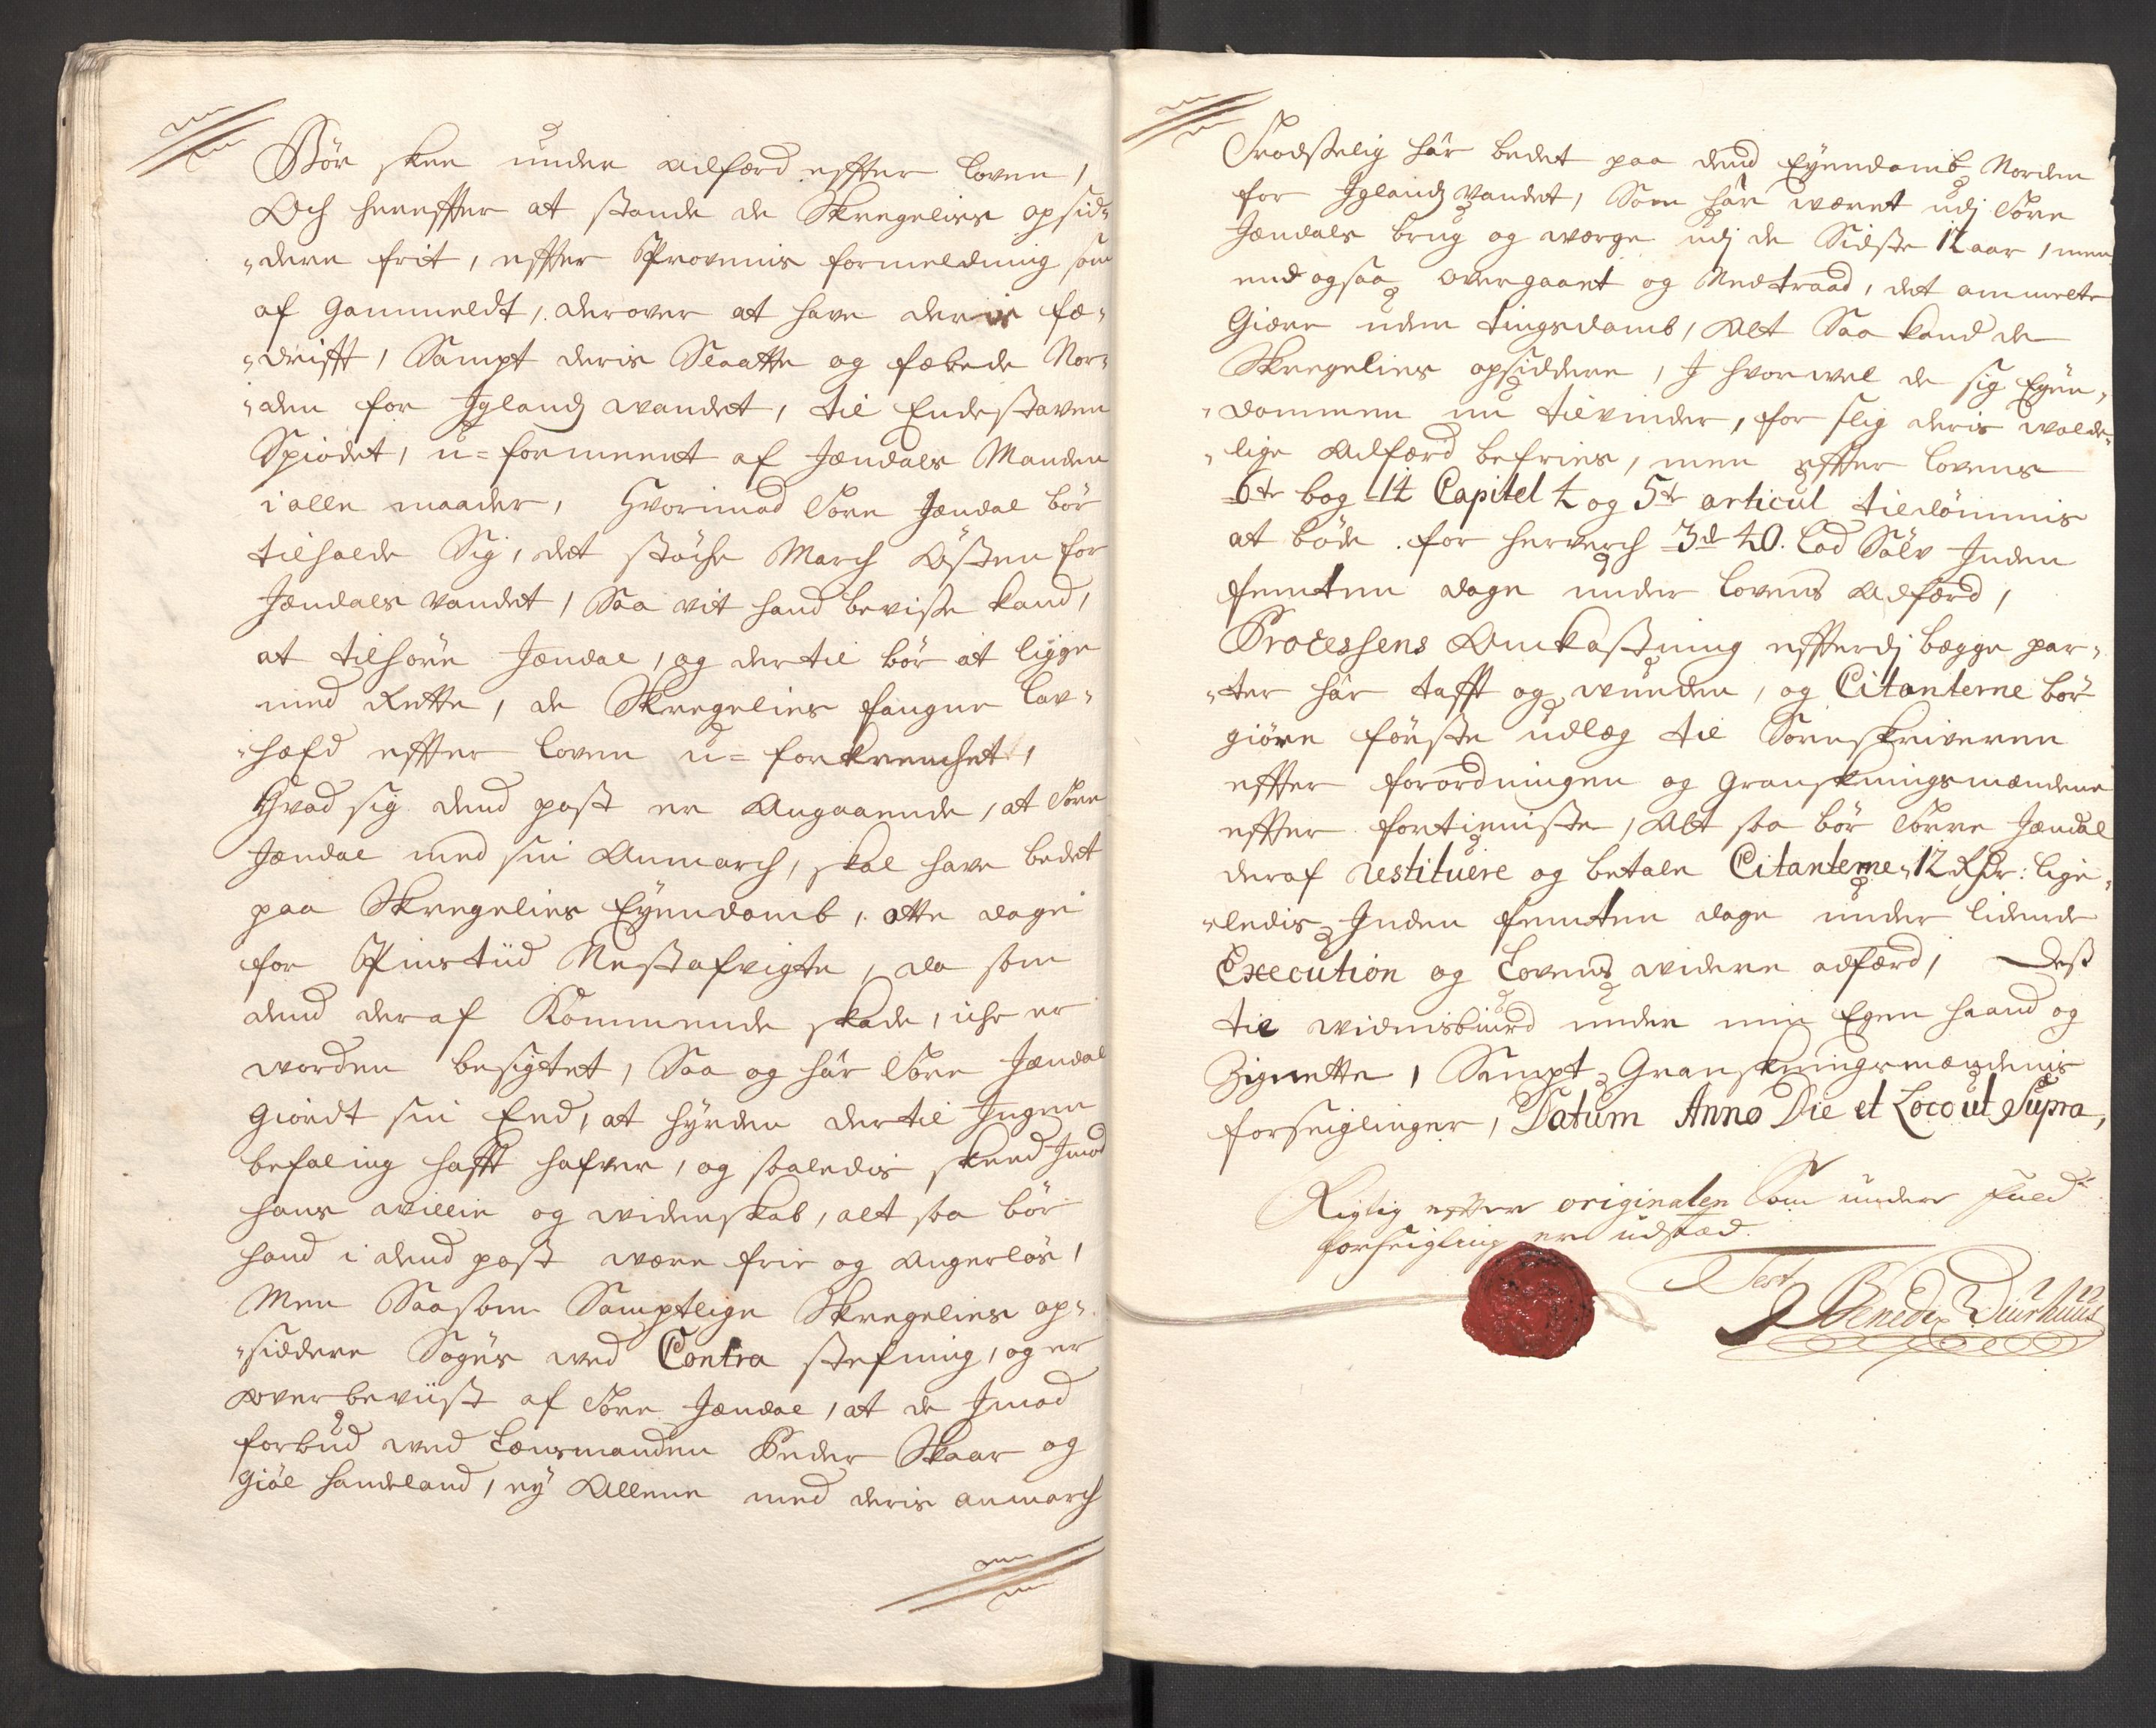 Bör skee under adfærd effter loven,
Och hereffter at stande de Skregelies opsid-
dere frit, effter Provenis formeldning som
af Gammeldt, derover at have deris fæ-
drifft, Sampt deris Slaatte og fæbede Nor-
den for Jglands wandet, til Endestaven
Spiodet, u-forment af Jændals Manden
i alle maader, Hvorimod Tore Jændal bör
tilholde Sig, det støche March Østen for
Jændals vandet, Saa vit hand beviße kand,
at tilhøre Jændal, og dertil bör at ligge
med Rette, de Skregelies fangne lav-
hæfd effter loven u-forkrenchet,
Hvad sig dend post er Angaaende, at Tore
Jændal med sin Anmarch, skal have bedet
paa Skregelies Eyendomb, otte dage
for Pinstiid Nestafvigte, da som
dend deraf Kommende skade, iche er
worden besigtet, Saa og hår Tore Jændal
Giördt sin Eed, at hyrden dertil Jngen
befaling hafft hafver, og saaledis skeed Jmod
hans willie og widenskab, alt saa bör
hand i dend post være frie og Angerløs,
Men Saasom Samptlige Skregelies op-
siddere Søgis wed Contra stefning, og er
overbeviist af Tore Jændal, at de Jmod
forbud wed Lensmanden Peder Skaar og
Giöe Handeland, ey Allene med deris anmarch
Trodsselig hår bedet paa dend Eyendomb Norden
for Jglands vandet, Som hår wæret udj Tore
Jændals brug og werge udj de Sidste 12 aar, men
end ogsaa overgaaet og Nedtraad, det ommelte
Giære uden tingsdomb, Alt Saa kand de
Skregelies opsiddere, J hvorwel de sig Eyen-
dommen nu tilvinder, for slig deris wolde-
lige Adfærd befries, men effter lovens
6te bog 14 Capitel 4 og 5te articul tildömmis
at böde for herverch 3de 40. Lod Sölv Jnden
femten dage under lovens Adfærd,
Processens Omkostning effterdj begge par-
ter hår tafft og wunden, og Citanterne bör
giöre förste udlæg til Sorenskriveren
effter forordningen og Granskningsmændene
effter fortienniste, Alt saa bör Torre Jændal
deraf restituere og betale Citanterne 12 Rdr: lige-
ledis Jnden femten dage under lidende
Execution og Lovens widere adfærd, Dest
til widnisbiurd under min Egen haand og
Zignette, Sampt Granskningsmændenis
forseiglinger, Datum Anno Die et Loco ut Supra,
Rigtig effter originalen Som under fuld
forseigling er udstæd.
Test
Benedix Diurhuus